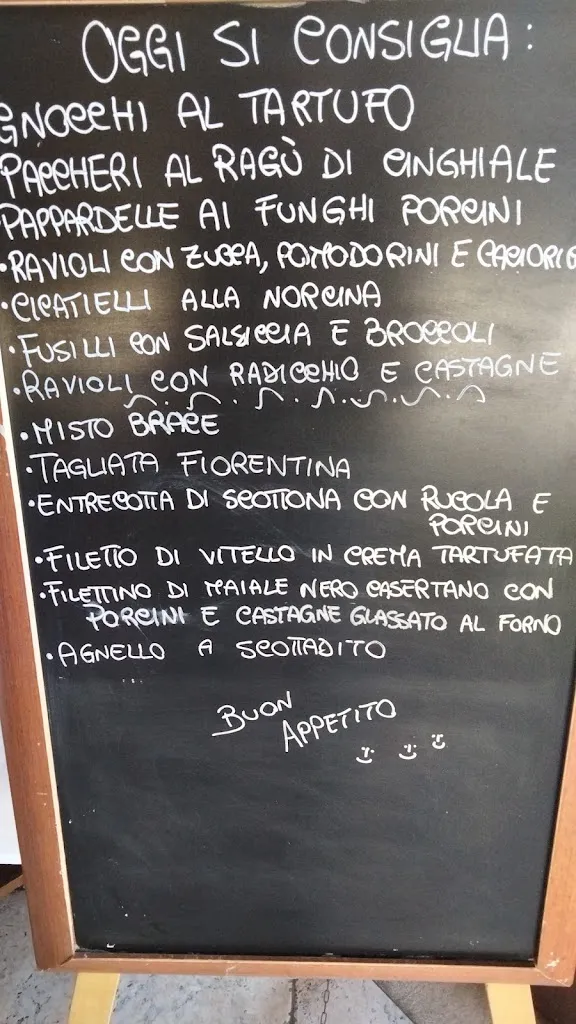 OGGI SI CONSIGLIA:
GNOCCHI AL TARTUFO
PACCHERI AL RAGÙ DI CINGHIALE
•PAPPARDELLE AI FUNGHI PORCINI
•RAVIOLI CON ZUCCA, POMODORINI E
•CICATIELLI ALLA NORCINA
•FUSILLI CON SALSICCIA E BROCCOLI
•RAVIOLI CON RADICCHIO E CASTAGNE
•MISTO BRACE
•TAGLIATA FIORENTINA
•ENTRECOTTA DI SCOTTONA CON RUCOLA E
PORCINI
•FILETTO DI VITELLO IN CREMA TARTUFATA
•FILETTINO DI MAIALE NERO CASERTANO CON
PORCINI E CASTAGNE GLASSATO AL FORNO
•AGNELLO A SCOTTADITO
BUON
APPETITO